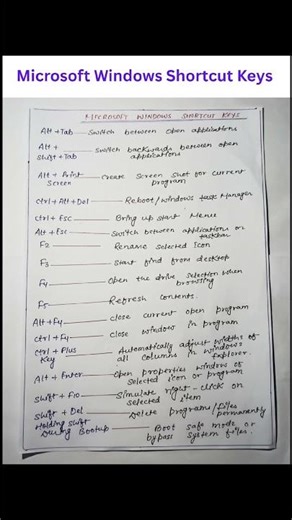 Microsoft Windows Shortcut Keys
MICROSOFT WINDOWS SHORTCUT KEYS
Alt + Tab — Switch between open applications
Alt +
Shift + Tab — Switch backwards between open
applications
Alt + Print
Screen — Create Screen Shot for current
program
Ctrl + Alt + Del — Reboot/windows task Manager
Ctrl + Esc — Bring up start Menue
Alt + Esc — Switch between application on
taskbar
F2 — Rename selected Icon
F3 — Start find from desktop
F4 — Open the drive selection when
browsing
F5 — Refresh contents.
Alt + F4 — close current open program
Ctrl + F4 — close window in program
Ctrl + Plus
Key — Automatically adjust widths of
all columns in windows
Explorer.
Alt + Enter — Open properties window of
selected icon or program
Shift + F10 — Simulate right-click on
selected item
Shift + Del — Delete programs/files
permanently
Holding Shift
During Bootup — Boot safe mode or
bypass system files.